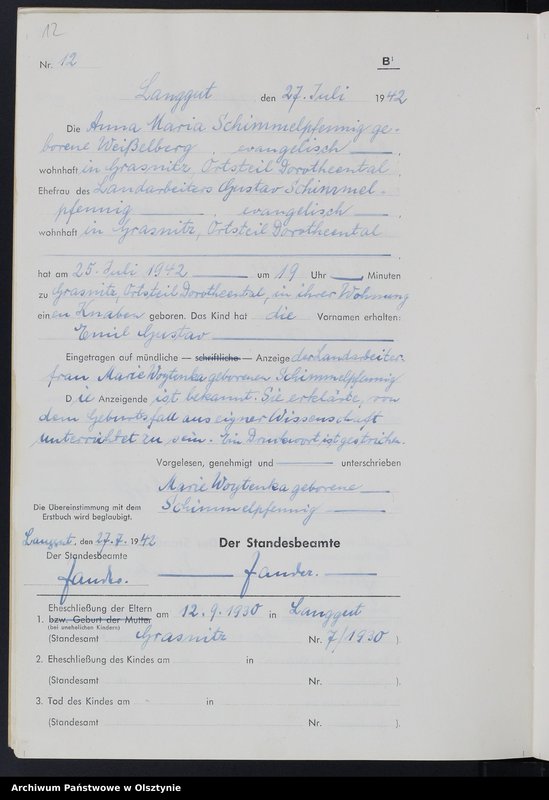 12
Nr. 12 B¹
Langgut, den 27. Juli 1942
Die Anna Maria Schimmelpfennig ge-
borene Weißelberg, evangelisch,
wohnhaft in Grasnitz, Ortsteil Dorotheental
Ehefrau des Landarbeiters Gustav Schimmel-
pfennig, evangelisch,
wohnhaft in Grasnitz, Ortsteil Dorotheental
,
hat am 25. Juli 1942 um 19 Uhr Minuten
zu Grasnitz, Ortsteil Dorotheental, in ihrer Wohnung
einen Knaben geboren. Das Kind hat die Vornamen erhalten:
Emil Gustav
Eingetragen auf mündliche — schriftliche — Anzeige der Landarbeiter-
frau Marie Woytenka geborenen Schimmelpfennig
Die Anzeigende ist bekannt. Sie erklärte, von
dem Geburtsfall aus eigner Wissenschaft
unterrichtet zu sein. Ein Druckwort ist gestrichen.
Vorgelesen, genehmigt und unterschrieben
Marie Woytenka geborene
Schimmelpfennig
Die Übereinstimmung mit dem
Erstbuch wird beglaubigt.
Langgut, den 27.7.1942
Der Standesbeamte
Der Standesbeamte
1. Eheschließung der Eltern
bzw. Geburt der Mutter am 12.9.1930 in Langgut
(bei unehelichen Kindern)
(Standesamt Grasnitz Nr. 7/1930 ).
2. Eheschließung des Kindes am in
(Standesamt Nr. ).
3. Tod des Kindes am in
(Standesamt Nr. ).
Archiwum Państwowe w Olsztynie